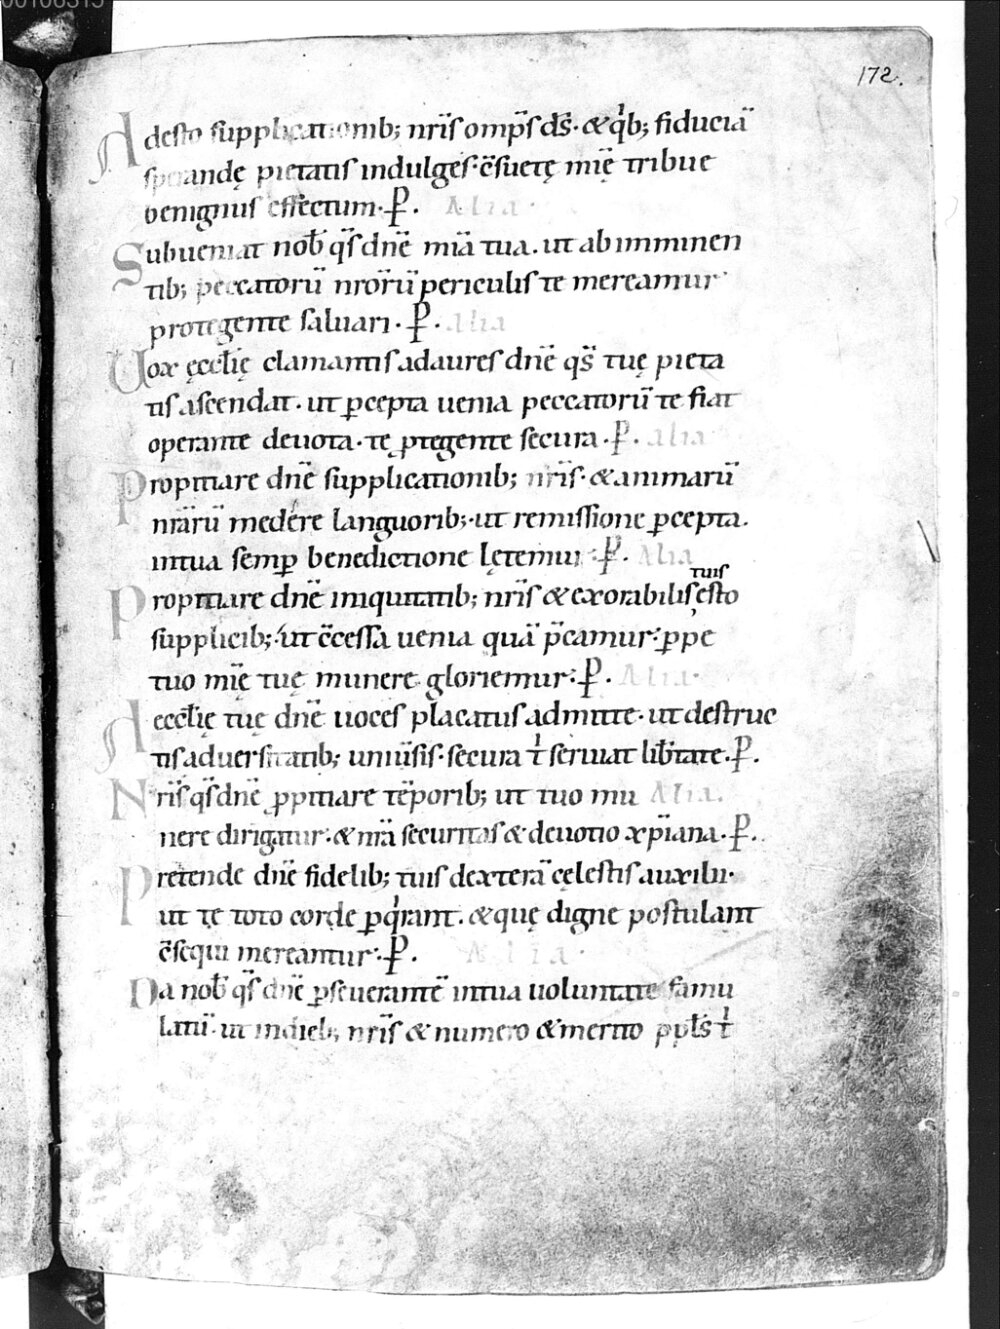 00106315
172.
Adesto supplicationib; nr̄is omp̄s d̄s· & qͥb; fiduciā
sperandę pietatis indulges· c̄suetę mīę tribue
benignus effectum· P̶. Alia·
Subueniat nob̄ q̄s dn̄e miā tua. ut ab imminen
tib; peccatorū nr̄orū periculis te mereamur
protegente saluari· P̶. Alia
Uox ęccl̄ię clamantis ad aures dn̄e q̄s tuę pieta
tis ascendat· ut ꝑcepta uenia peccatorū te fiat
operante deuota· te ꝓtegente secura· P̶. alia
Propitiare dn̄e supplicationib; nr̄is· & animarū
nr̄arū medere languorib;· ut remissione ꝑcepta.
in tua semꝑ benedictione lętemur· P̶. Alia
Propitiare dn̄e iniquitatib; nr̄is & exorabilis tuis esto
supplicib; ut c̄cessa uenia quā p̄camur· ꝑpe
tuo mīę tuę munere gloriemur· P̶. Alia·
Aeccl̄ię tuę dn̄e uoces placatus admitte· ut destruc
tis aduersitatib; uniu̅sis· secura t̄ seruiat lib̄tate· P̶.
Nr̄is q̄s dn̄e ꝓpitiare tēporib; ut tuo mu Alia.
nere dirigatur· & nr̄a securitas & deuotio xp̄iana· P̶.
Pretende dn̄e fidelib; tuis dexterā cęlestis auxilii·
ut te toto corde ꝑqͥrant. & quę digne postulant
c̄sequi mereantur· P̶. Alia·
Da nob̄ q̄s dn̄e ꝑseuerantē in tua uoluntate famu
latū· ut in dieb; nr̄is & numero & merito ppl̄s t̄